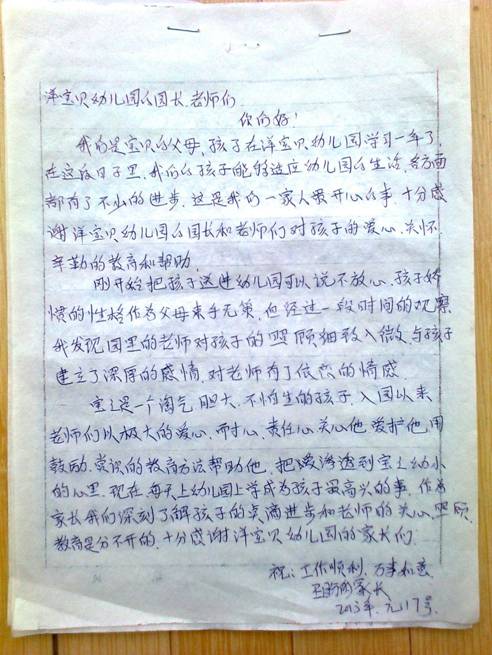 洋宝贝幼儿园的园长.老师们
你们好!
我们是宝贝的父母,孩子在洋宝贝幼儿园学习一年了,
在这段日子里,我们的孩子能够适应幼儿园的生活,各方面
都有了不小的进步.这是我们一家人最开心的事.十分感
谢洋宝贝幼儿园的园长和老师们对孩子的爱心.关怀.
辛勤的教育和帮助.
刚开始把孩子送进幼儿园可以说不放心.孩子娇
惯的性格作为父母束手无策.但经过一段时间的观察
我发现园里的老师对孩子的照顾细致入微.与孩子
建立了深厚的感情.对老师有了依恋的情感
宝宝是一个淘气.胆大.不怕生的孩子.入园以来
老师们以极大的爱心.耐心.责任心关心他爱护他.用
鼓励.赏识的教育方法帮助他.把爱渗透到宝宝幼小
的心里.现在每天上幼儿园上学成为孩子最高兴的事.作为
家长我们深刻了解孩子的点滴进步和老师的关心.照顾
教育是分不开的.十分感谢洋宝贝幼儿园的家长们.
祝:工作顺利.万事如意
家长
2013年.元17号.